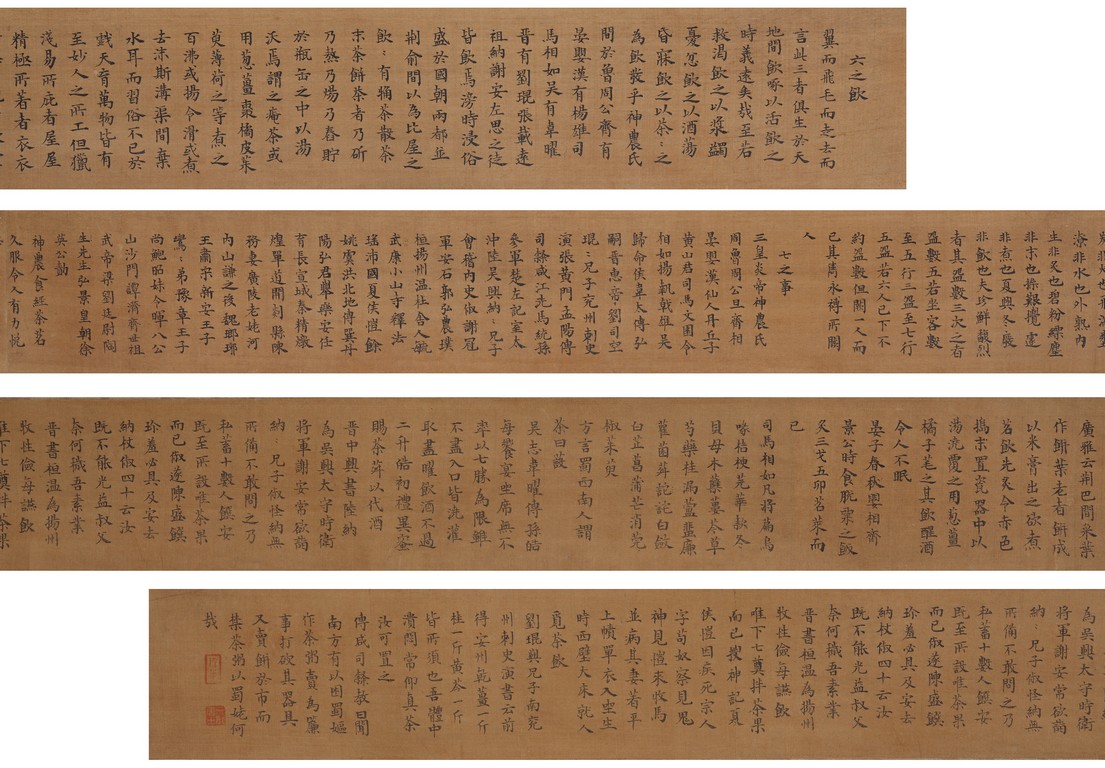 六之飲
翼而飛毛而走去而
言此三者俱生於天
地間飲啄以活飲之
時義遠矣哉至若
救渴飲之以漿蠲
憂忿飲之以酒蕩
昏寐飲之以茶：之
為飲發乎神農氏
間於魯周公齊有
晏嬰漢有楊雄司
馬相如吳有韋曜
晉有劉琨張載遠
祖納謝安左思之徒
皆飲焉滂時浸俗
盛於國朝兩都並
荊俞間以為比屋之
飲：有觕茶散茶
末茶餅茶者乃斫
乃熬乃煬乃舂貯
於瓶缶之中以湯
沃焉謂之庵茶或
用蔥薑棗橘皮茱
萸薄荷之等煮之
百沸或揚令滑或煮
去沫斯溝渠間棄
水耳而習俗不已於
戲天育萬物皆有
至妙人之所工但獵
淺易所庇者屋屋
精極所著者衣衣
療非水也外熟內
生非炙也碧粉縹塵
非末也操艱攪遽
非煮也夏興冬廢
非飲也夫珍鮮馥烈
者其盌數三次之者
盌數五若坐客數
至五行三盌至七行
五盌若六人已下不
約盌數但闕一人而
已其雋永補所闕
人
七之事
三皇炎帝神農氏
周魯周公旦齊相
晏嬰漢仙人丹丘子
黃山君司馬文園令
相如揚執戟雄吳
歸命侯韋太傅弘
嗣晉惠帝劉司空
琨：兄子兖州刺史
演張黃門孟陽傅
司隸咸江先馬統孫
參軍楚左記室太
沖陸吳興納：兄子
會稽內史俶謝冠
軍安石郭弘農璞
桓揚州溫杜舍人毓
武康小山寺釋法
瑤沛國夏侯愷餘
姚虞洪北地傅巽丹
陽弘君舉樂安任
育長宣城秦精燉
煌單道開剡縣陳
務妻廣陵老姥河
內山謙之後魏瑯琊
王肅宋新安王子
鸞：弟豫章王子
尚鮑昭妹令暉八公
山沙門譚濟齊世祖
武帝梁劉廷尉陶
生先生弘景皇朝徐
英公勣
神農食經茶茗
久服令人有力悅
廣雅云荊巴間采葉
作餅葉老者餅成
以米膏出之欲煮
茗飲先炙令赤色
搗末置瓷器中以
湯澆覆之用蔥薑
橘子芼之其飲醒酒
令人不眠
晏子春秋嬰相齊
景公時食脫粟之飯
炙三弋五卵茗菜而
已
司馬相如凡將篇烏
啄桔梗芫華款冬
貝母木蘗蔞芩草
芍藥桂漏蘆蜚廉
雚菌荈詫白斂
白芷菖蒲芒消莞
椒茱萸
方言蜀西南人謂
茶曰蔎
吳志韋曜傳孫皓
每饗宴坐席無不
率以七勝為限雖
不盡入口皆澆灌
取盡曜飲酒不過
二升皓初禮異密
賜茶荈以代酒
晉中興書陸納
為吳興太守時衛
將軍謝安常欲詣
納：兄子俶怪納無
所備不敢問之乃
私蓄十數人饌安
既至所設唯茶果
而已俶遂陳盛饌
珍羞必具及安去
納杖俶四十云汝
既不能光益叔父
奈何穢吾素業
晉書桓溫為揚州
牧性儉每讌飲
唯下七奠拌茶果
為吳興太守時衛
將軍謝安常欲詣
納：兄子俶怪納無
所備不敢問之乃
私蓄十數人饌安
既至所設唯茶果
而已俶遂陳盛饌
珍羞必具及安去
納杖俶四十云汝
既不能光益叔父
奈何穢吾素業
晉書桓溫為揚州
牧性儉每讌飲
唯下七奠拌茶果
而已搜神記夏
侯愷因疾死宗人
字苟奴察見鬼
神見愷來收馬
並病其妻著平
上幘單衣入坐生
時西壁大床就人
覓茶飲
劉琨與兄子南兖
州刺史演書云前
得安州乾薑一斤
桂一斤黃芩一斤
皆所須也吾體中
潰悶常仰真茶
汝可置之
傅咸司隸教曰聞
南方有以困蜀嫗
作茶粥賣為簾
事打破其器具
又賣餅於市而
禁茶粥以蜀姥何
哉